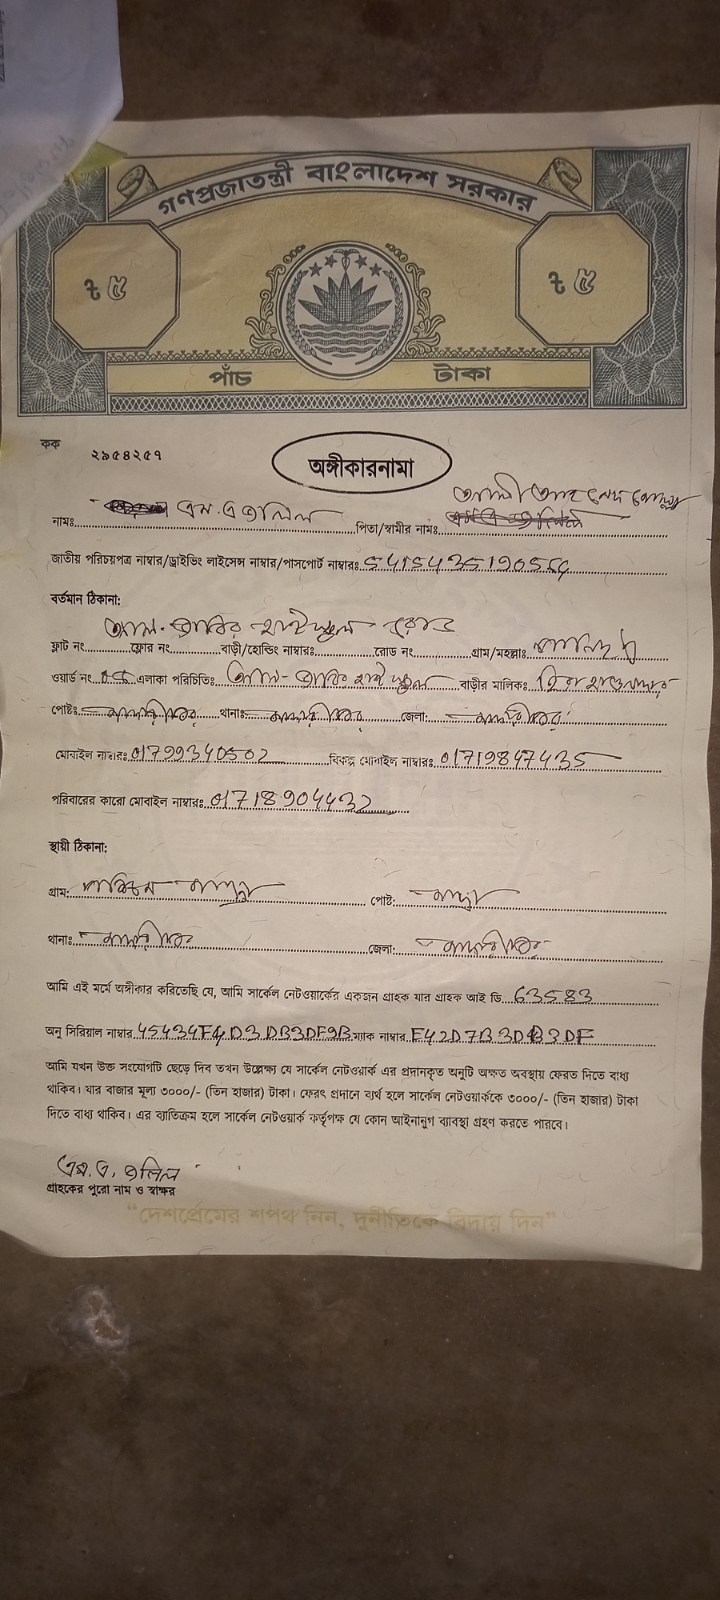 গণপ্রজাতন্ত্রী বাংলাদেশ সরকার
৳ ৫ ৳ ৫
পাঁচ টাকা
কক ২৯৫৪২৫৭
অঙ্গীকারনামা
নামঃ এম. এ জলিল পিতা/স্বামীর নামঃ আলী আহমেদ
জাতীয় পরিচয়পত্র নাম্বার/ড্রাইভিং লাইসেন্স নাম্বার/পাসপোর্ট নাম্বারঃ
বর্তমান ঠিকানা:
আল-জাবির হাইস্কুল রোড
ফ্লাট নং ফ্লোর নং বাড়ী/হোল্ডিং নাম্বারঃ রোড নং গ্রাম/মহল্লাঃ
ওয়ার্ড নং এলাকা পরিচিতিঃ আল-জাবির হাই স্কুল বাড়ীর মালিকঃ হিরা হাওলাদার
পোষ্টঃ মাদারীপুর থানাঃ মাদারীপুর জেলা: মাদারীপুর
মোবাইল নাম্বারঃ 01799340502 বিকল্প মোবাইল নাম্বারঃ 01719847435
পরিবারের কারো মোবাইল নাম্বারঃ 01718904432
স্থায়ী ঠিকানা:
গ্রাম: পোষ্ট:
থানাঃ মাদারীপুর জেলা: মাদারীপুর
আমি এই মর্মে অঙ্গীকার করিতেছি যে, আমি সার্কেল নেটওয়ার্কের একজন গ্রাহক যার গ্রাহক আই ডি 63583
অনু সিরিয়াল নাম্বার 45434F4D3DB3DF9B ম্যাক নাম্বার
আমি যখন উক্ত সংযোগটি ছেড়ে দিব তখন উল্লেখ্য যে সার্কেল নেটওয়ার্ক এর প্রদানকৃত অনুটি অক্ষত অবস্থায় ফেরত দিতে বাধ্য
থাকিব। যার বাজার মূল্য ৩০০০/- (তিন হাজার) টাকা। ফেরৎ প্রদানে ব্যর্থ হলে সার্কেল নেটওয়ার্ককে ৩০০০/- (তিন হাজার) টাকা
দিতে বাধ্য থাকিব। এর ব্যতিক্রম হলে সার্কেল নেটওয়ার্ক কর্তৃপক্ষ যে কোন আইনানুগ ব্যবস্থা গ্রহণ করতে পারবে।
এম. এ. জলিল
গ্রাহকের পুরো নাম ও স্বাক্ষর
“দেশপ্রেমের শপথ নিন, দুর্নীতিকে বিদায় দিন”